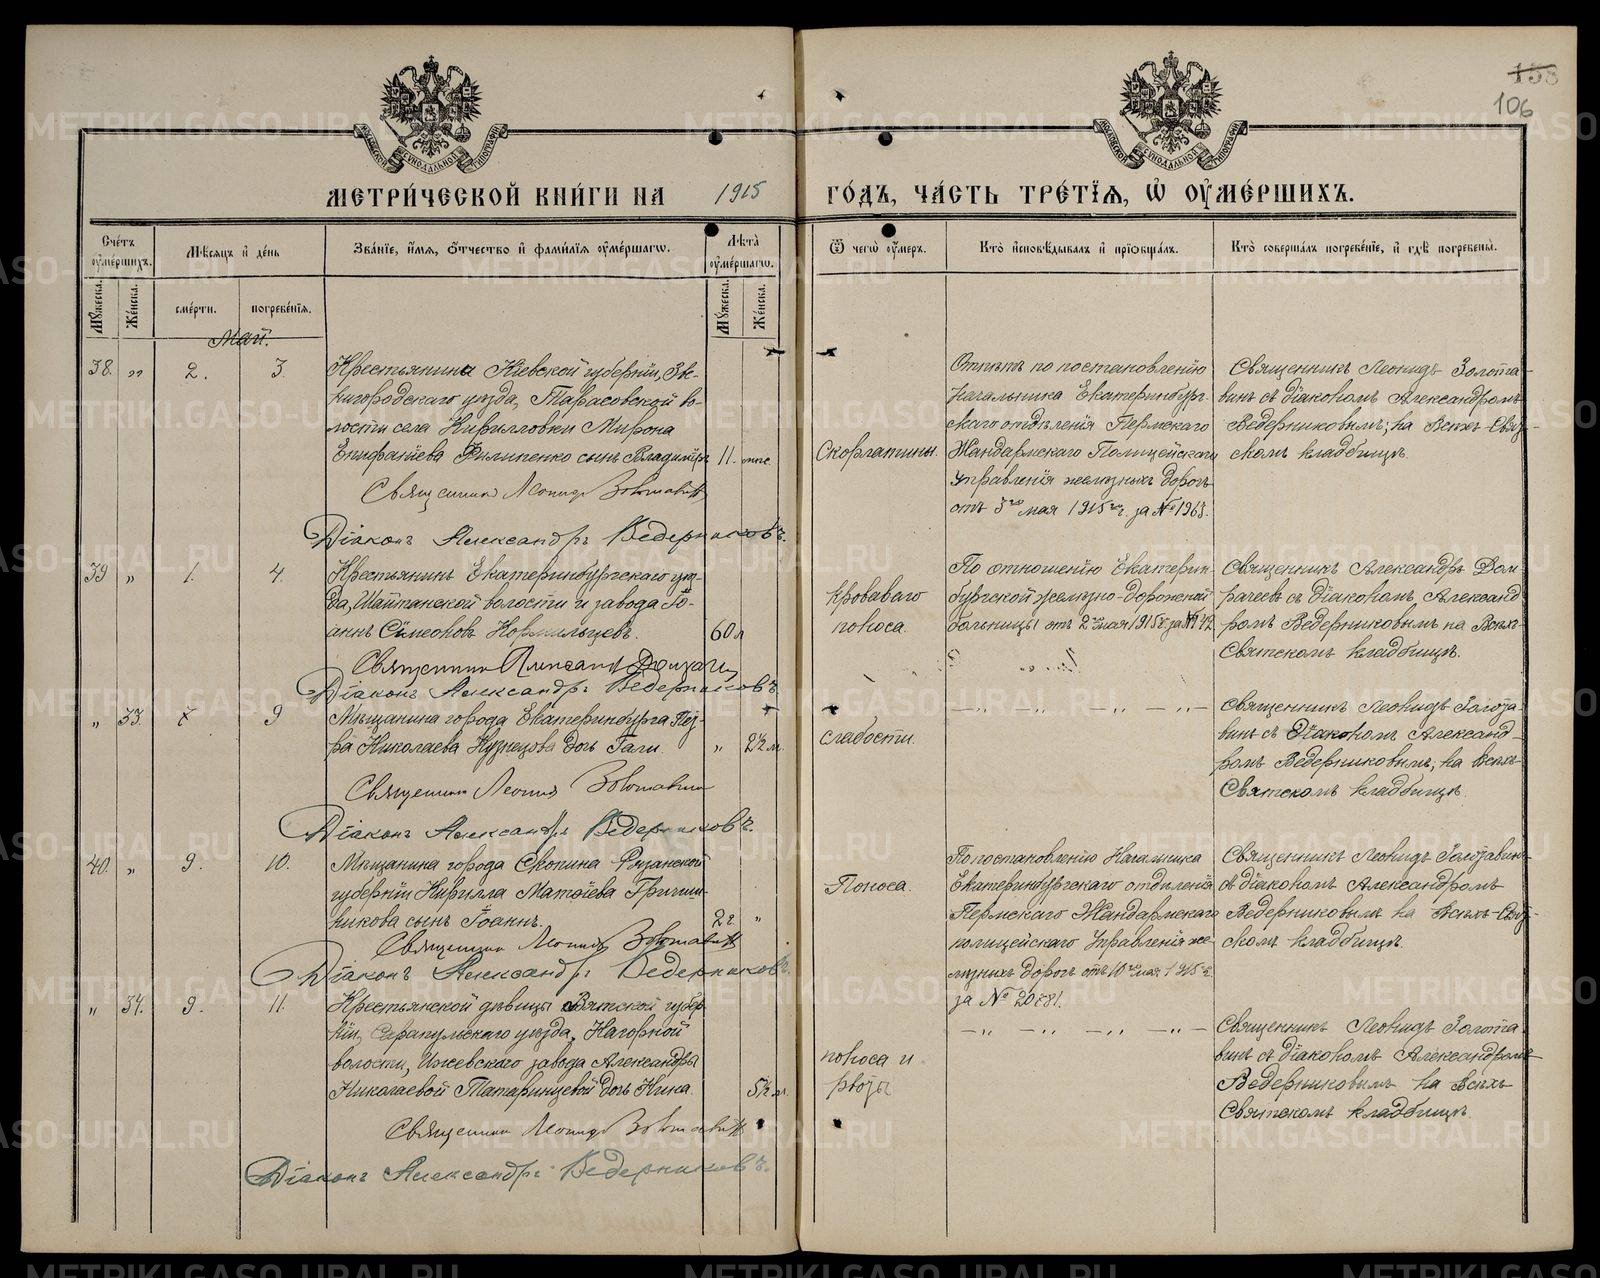 158
106
МОСКОВСКОЙ СѴНОДАЛЬНОЙ ТИПОГРАФІИ
МОСКОВСКОЙ СѴНОДАЛЬНОЙ ТИПОГРАФІИ
МЕТРИ́ЧЕСКОЙ КНИ́ГИ НА 1915 ГО́ДЪ, ЧА́СТЬ ТРЕ́ТЇѦ, Ѡ҆ ОУ҆МЕ́РШИХЪ.
Сче́тъ оу҆ме́ршихъ.
Мѣсѧцъ и҆ де́нь
Зва́нїе, и҆́мѧ, ѻ҆́тчество и҆ фами́лїѧ оу҆ме́ршагѡ.
Лѣ́та оу҆ме́ршагѡ.
Ѿ чегѡ̀ оу҆́меръ.
Кто̀ и҆сповѣ́дывалъ и҆ прїѡбща́лъ.
Кто̀ соверша́лъ погребе́нїе, и҆ гдѣ̀ погребены̀.
Мꙋ́жеска.
Же́нска.
сме́рти.
погребе́нїѧ.
Мꙋ́жеска.
Же́нска.
Май.
38. „ 2. 3.
Крестьянина Кіевской губерніи, Зве-
нигородскаго уѣзда, Тарасовской во-
лости села Кирилловки Мирона
Епифаніева Филипенко сынъ Владиміръ 11.
Священникъ Леонидъ Золотавинъ
Діаконъ Александръ Ведерниковъ.
Скорлатины.
Отпѣтъ по постановленію
Начальника Екатеринбург-
скаго отдѣленія Пермскаго
Жандармскаго Полицейскаго
Управленія желѣзныхъ дорогъ
отъ 3го мая 1915 г. за № 1963.
Священникъ Леонидъ Золота-
винъ съ діакономъ Александромъ
Ведерниковымъ; на Всѣхъ-Свят-
скомъ кладбищѣ.
39 „ 1. 4.
Крестьянинъ Екатеринбургскаго уѣз-
да, Шайтанской волости и завода Іо-
аннъ Сѵмеоновъ Кормильцевъ. 60 л
Священникъ Александръ
Діаконъ Александръ Ведерниковъ.
Кроваваго
поноса.
По отношенію Екатерин-
бургской желѣзно-дорожной
больницы отъ 2го мая 1915 г. за №
Священникъ Александръ Дом-
рачеевъ съ діакономъ Александ-
ромъ Ведерниковымъ на Всѣхъ-
Святскомъ кладбищѣ.
„ 33. 7 9
Мѣщанина города Екатеринбурга Пет-
ра Николаева Кузнецова дочь „ 2½ м.
Священникъ Леонидъ Золотавинъ
Діаконъ Александръ Ведерниковъ.
слабости.
— „ — „ — „ — „ —
Священникъ Леонидъ Золота-
винъ съ діакономъ Александ-
ромъ Ведерниковымъ, на Всѣхъ-
Святскомъ кладбищѣ.
40. „ 9. 10.
Мѣщанина города Скопина Рязанской
губерніи Кирилла Матѳіева Гречиш-
никова сынъ Іоаннъ. 2 г. „
Священникъ Леонидъ Золотавинъ
Діаконъ Александръ Ведерниковъ.
Поноса.
По постановленію Начальника
Екатеринбургскаго отдѣленія
Пермскаго Жандармскаго
полицейскаго Управленія же-
лѣзныхъ дорогъ отъ 10го мая 1915 г.
за № 20881.
Священникъ Леонидъ Золотавинъ
съ діакономъ Александромъ
Ведерниковымъ на Всѣхъ-Свят-
скомъ кладбищѣ.
„ 34. 9. 11.
Крестьянской дѣвицы Вятской губер-
ніи, Сарапульскаго уѣзда, Нагорной
волости, Ижевскаго завода Александры
Николаевой Татаринцевой дочь Нина. 5½ м.
Священникъ Леонидъ Золотавинъ
Діаконъ Александръ Ведерниковъ.
поноса и
рвоты
— „ — „ — „ — „ —
Священникъ Леонидъ Золота-
винъ съ діакономъ Александромъ
Ведерниковымъ на Всѣхъ-
Святскомъ кладбищѣ.
METRIKI.GASO-URAL.RU